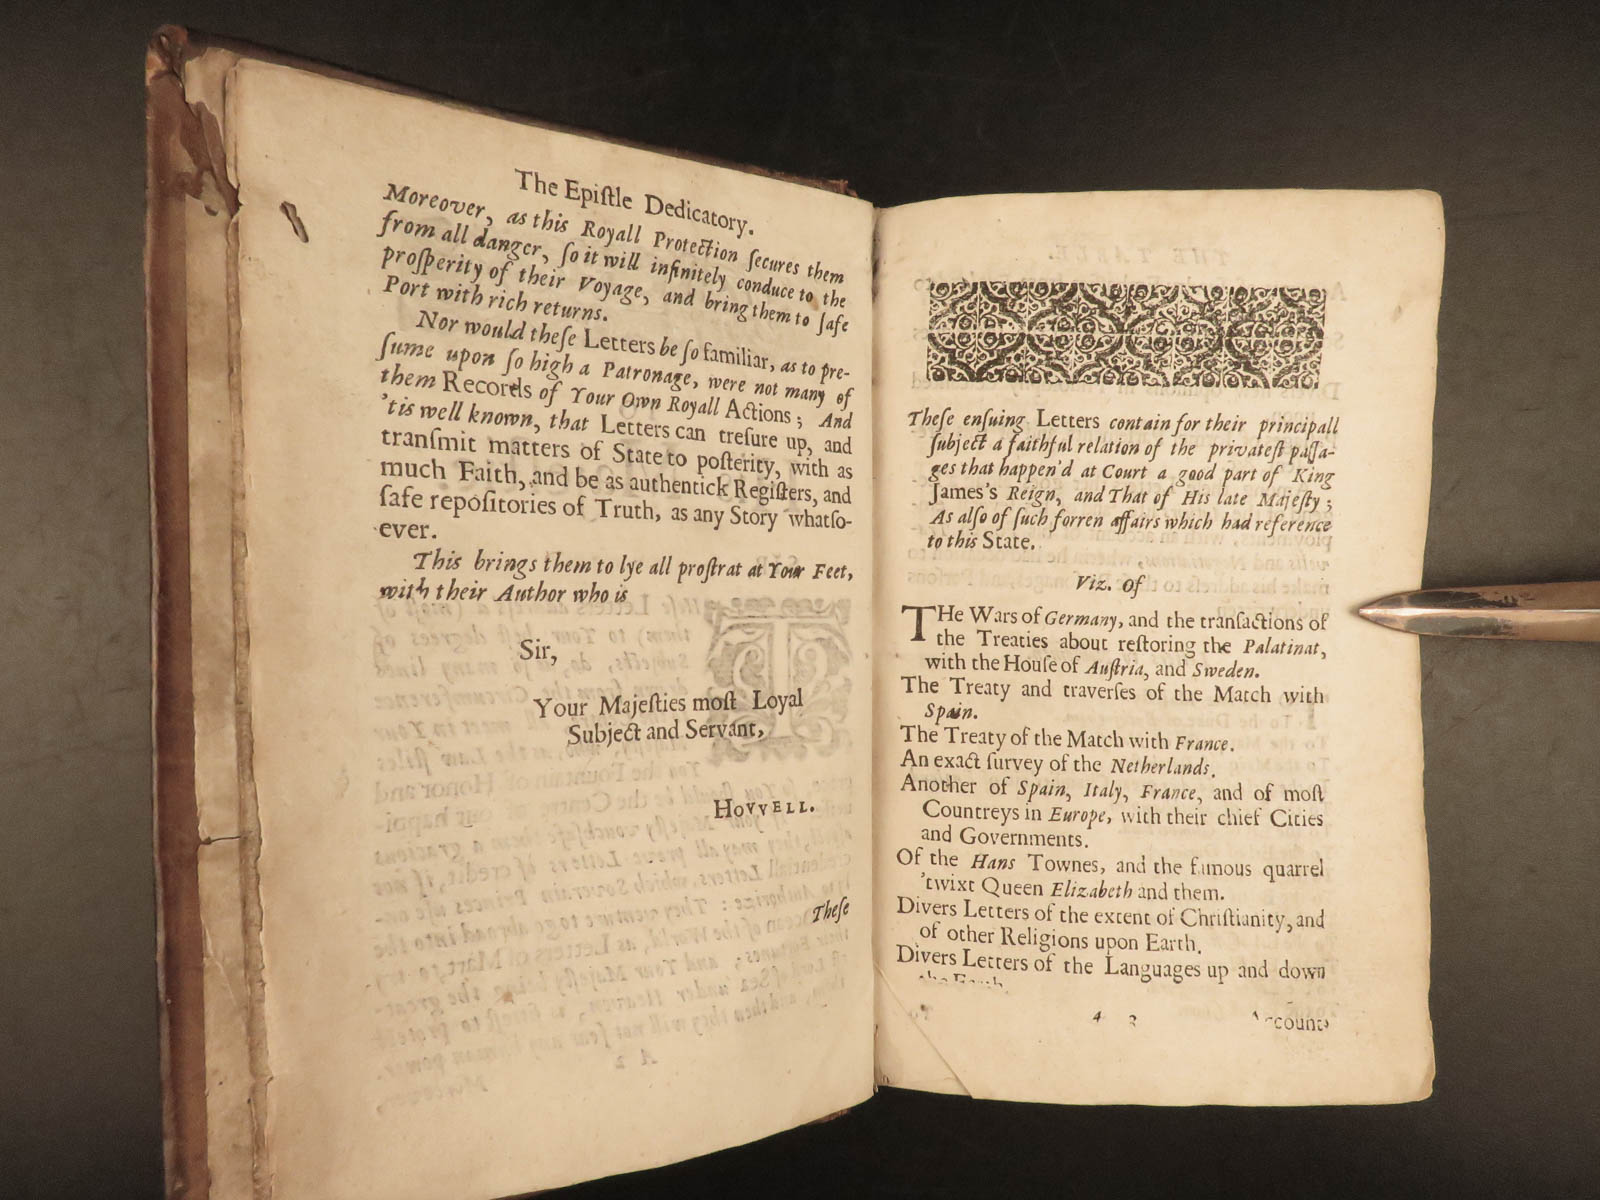 The Epiſtle Dedicatory.
Moreover, as this Royall Protection ſecures them
from all danger, ſo it will infinitely conduce to the
proſperity of their Voyage, and bring them to ſafe
Port with rich returns.
Nor would theſe Letters be ſo familiar, as to pre-
ſume upon ſo high a Patronage, were not many of
them Records of Your Own Royall Actions; And
'tis well known, that Letters can treſure up, and
tranſmit matters of State to poſterity, with as
much Faith, and be as authentick Regiſters, and
ſafe repoſitories of Truth, as any Story whatſo-
ever.
This brings them to lye all proſtrat at Your Feet,
with their Author who is
Sir,
Your Majeſties moſt Loyal
Subject and Servant,
HOVVELL.
Theſe
Theſe enſuing Letters contain for their principall
ſubject a faithful relation of the privateſt paſſa-
ges that happen'd at Court a good part of King
James's Reign, and That of His late Majeſty;
As alſo of ſuch forren affairs which had reference
to this State.
Viz. of
THe Wars of Germany, and the tranſactions of
the Treaties about reſtoring the Palatinat,
with the Houſe of Auſtria, and Sweden.
The Treaty and traverſes of the Match with
Spain.
The Treaty of the Match with France.
An exact ſurvey of the Netherlands.
Another of Spain, Italy, France, and of moſt
Countreys in Europe, with their chief Cities
and Governments.
Of the Hans Townes, and the famous quarrel
'twixt Queen Elizabeth and them.
Divers Letters of the extent of Chriſtianity, and
of other Religions upon Earth.
Divers Letters of the Languages up and down
the Earth.
Accounts